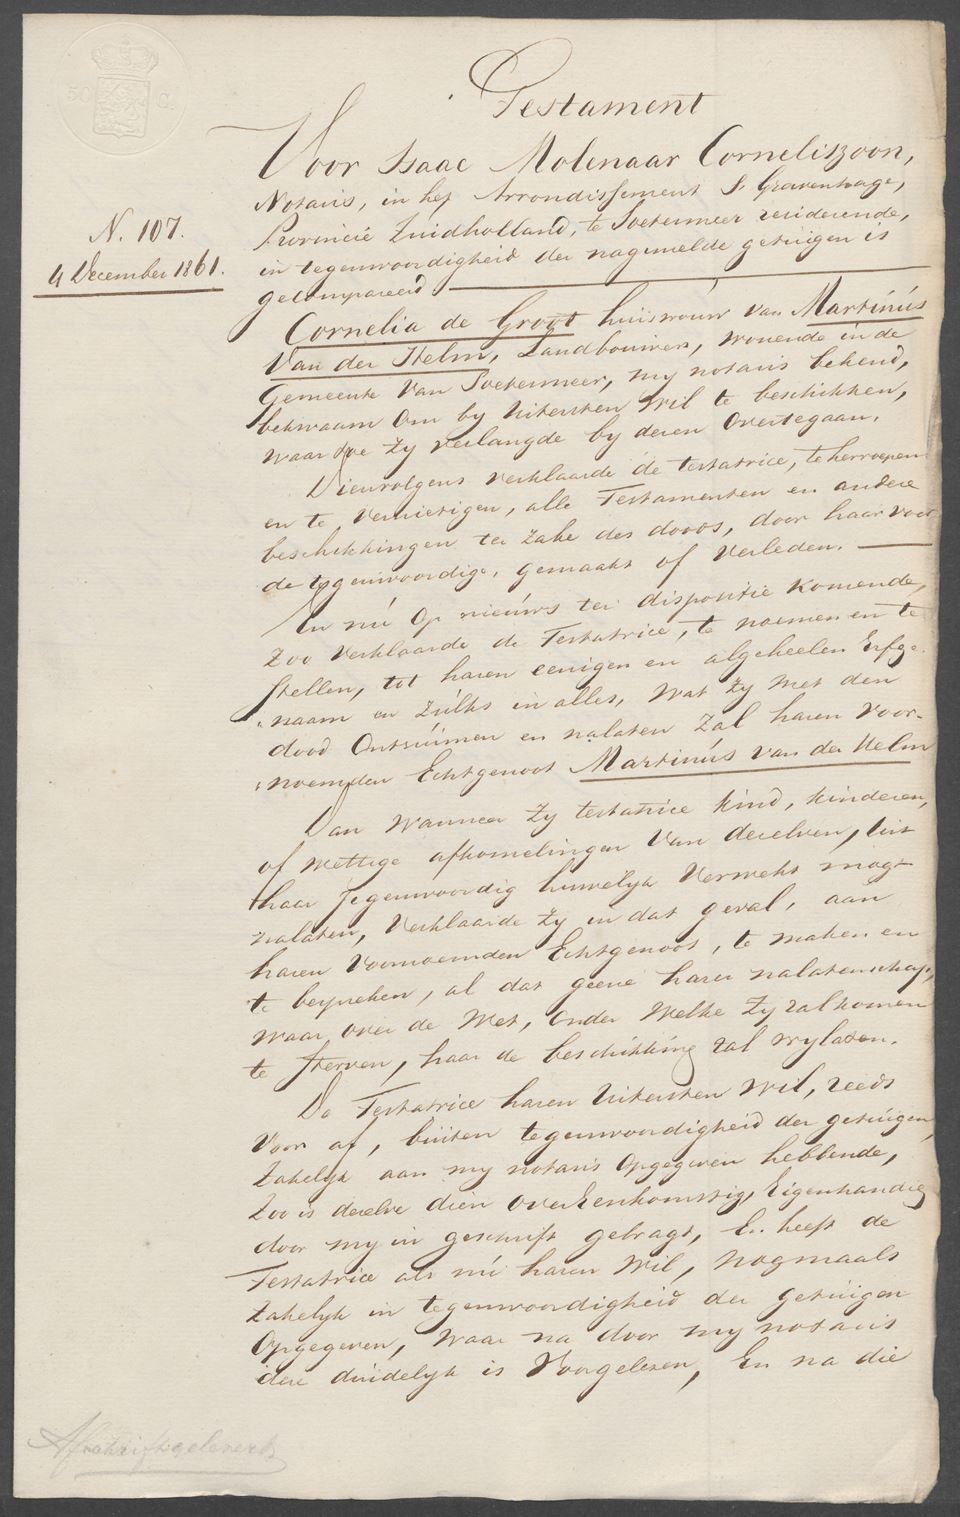 50 C.
Testament
Voor Isaac Molenaar Corneliszoon,
Notaris, in het Arrondissement S. Gravenhage,
Provincie Zuidholland, te Soetermeer residerende,
in tegenwoordigheid der nagemelde getuigen is
gecompareerd
N. 107.
4 December 1861.
Cornelia de Groot huisvrouw van Martinús
Van der Helm, Landbouwers, wonende in de
Gemeente van Soetermeer, my notaris bekend,
bekwaam om by Uitersten Wil te beschikken,
waar toe zy verlangde by deren overtegaan.
Dienvolgens verklaarde de testatrice, te herroepen
en te vernietigen, alle Testamenten en andere
beschikkingen ter zake des doods, door haar voor
de tegenwoordige, gemaakt of verleden.
En nú op nieuws ter dispositie komende,
zoo verklaarde de Testatrice, te noemen en te
stellen, tot haren eenigen en algeheelen Erfge-
naam en zúlks in alles, wat zy met den
dood ontrúimen en nalaten zal haren voor-
noemden Echtgenoot Martinús van der Helm
Dan wanneer zy testatrice kind, kinderen,
of wettige afkomelingen van dezelven, uit
haar tegenwoordig huwelyk verwekt mogt
nalaten, verklaarde zy in dat geval, aan
haren voornoemden Echtgenoot, te maken en
te bespreken, al dat geene harer nalatenschap,
waar over de Wet, onder welke zy zal komen
te sterven, haar de beschikking zal vrylaten.
De Testatrice haren Uitersten Wil, reeds
voor af, búiten tegenwoordigheid der getúigen,
zakelyk aan my notaris opgegeven hebbende,
zoo is dezelve dien overeenkomstig, Eigenhandig
door my in geschrift gebragt, En heeft de
Testatrice als nú haren Wil, nogmaals
zakelyk in tegenwoordigheid der getúigen
opgegeven, waar na door my notaris
deze dúidelyk is voorgelezen, En na die
Afschrift geleverd